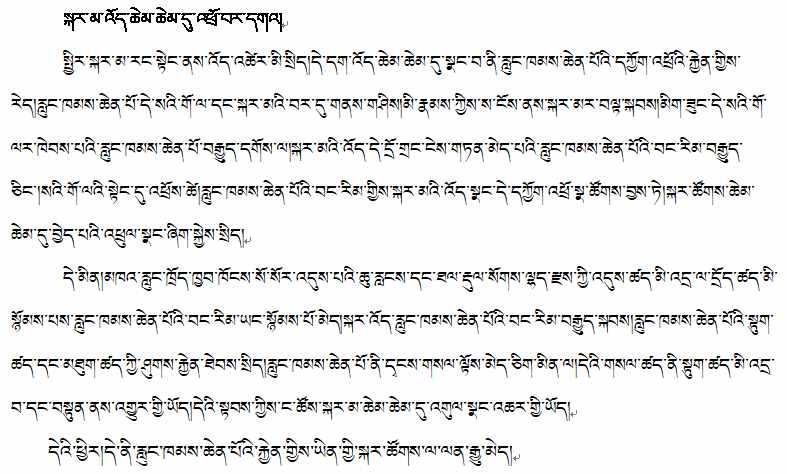 སྐར་མ་འོད་ཆེམ་ཆེམ་དུ་འཕྲོ་བར་དགལ།
སྤྱིར་སྐར་མ་རང་སྟེང་ནས་འོད་འཚེར་མི་སྲིད།དེ་དག་འོད་ཆེམ་ཆེམ་དུ་སྣང་བ་ནི་རླུང་ཁམས་ཆེན་པོའི་དཀྱོག་འཕྲོའི་རྐྱེན་གྱིས་
རེད།རླུང་ཁམས་ཆེན་པོ་དེ་སའི་གོ་ལ་དང་སྐར་མའི་བར་དུ་གནས་གཤིས།མི་རྣམས་ཀྱིས་ས་ངོས་ནས་སྐར་མར་བལྟ་སྐབས།མིག་ཟུང་དེ་སའི་གོ་
ལར་ཁེབས་པའི་རླུང་ཁམས་ཆེན་པོ་བརྒྱུད་དགོས་ལ།སྐར་མའི་འོད་དེ་དྲོ་གྲང་ངེས་གཏན་མེད་པའི་རླུང་ཁམས་ཆེན་པོའི་བང་རིམ་བརྒྱུད་
ཅིང་།སའི་གོ་ལའི་སྟེང་དུ་འཕྲོས་ཚེ།རླུང་ཁམས་ཆེན་པོའི་བང་རིམ་གྱིས་སྐར་མའི་འོད་སྣང་དེ་དཀྱོག་འཕྲོ་སྣ་ཚོགས་བྱས་ཏེ།སྐར་ཚོགས་ཆེམ་
ཆེམ་དུ་བྱེད་པའི་འཕྲུལ་སྣང་ཞིག་སྐྱེས་སྲིད།
དེ་མིན།མཁའ་རླུང་ཁྲོད་ཁྱབ་ཁོངས་སོ་སོར་འདུས་པའི་ཆུ་རླངས་དང་ཐལ་རྡུལ་སོགས་ལྷད་རྫས་ཀྱི་འདུས་ཚད་མི་འདྲ་ལ་དྲོད་ཚད་མི་
སྙོམས་པས་རླུང་ཁམས་ཆེན་པོའི་བང་རིམ་ཡང་སྙོམས་པོ་མེད།སྐར་འོད་རླུང་ཁམས་ཆེན་པོའི་བང་རིམ་བརྒྱུད་སྐབས།རླུང་ཁམས་ཆེན་པོའི་སྟུག་
ཚད་དང་མཐུག་ཚད་ཀྱི་ཤུགས་རྐྱེན་ཐེབས་སྲིད།རླུང་ཁམས་ཆེན་པོ་ནི་དྭངས་གསལ་ལྟོས་མེད་ཅིག་མིན་ལ།དེའི་གསལ་ཚད་ནི་སྟུག་ཚད་མི་འདྲ་
བ་དང་བསྟུན་ནས་འགྱུར་གྱི་ཡོད།དེའི་སྟབས་ཀྱིས་ང་ཚོས་སྐར་མ་ཆེམ་ཆེམ་དུ་འགུལ་སྣང་འཆར་གྱི་ཡོད།
དེའི་ཕྱིར།དེ་ནི་རླུང་ཁམས་ཆེན་པོའི་རྐྱེན་གྱིས་ཡིན་གྱི་སྐར་ཚོགས་ལ་ལན་རྒྱུ་མེད།